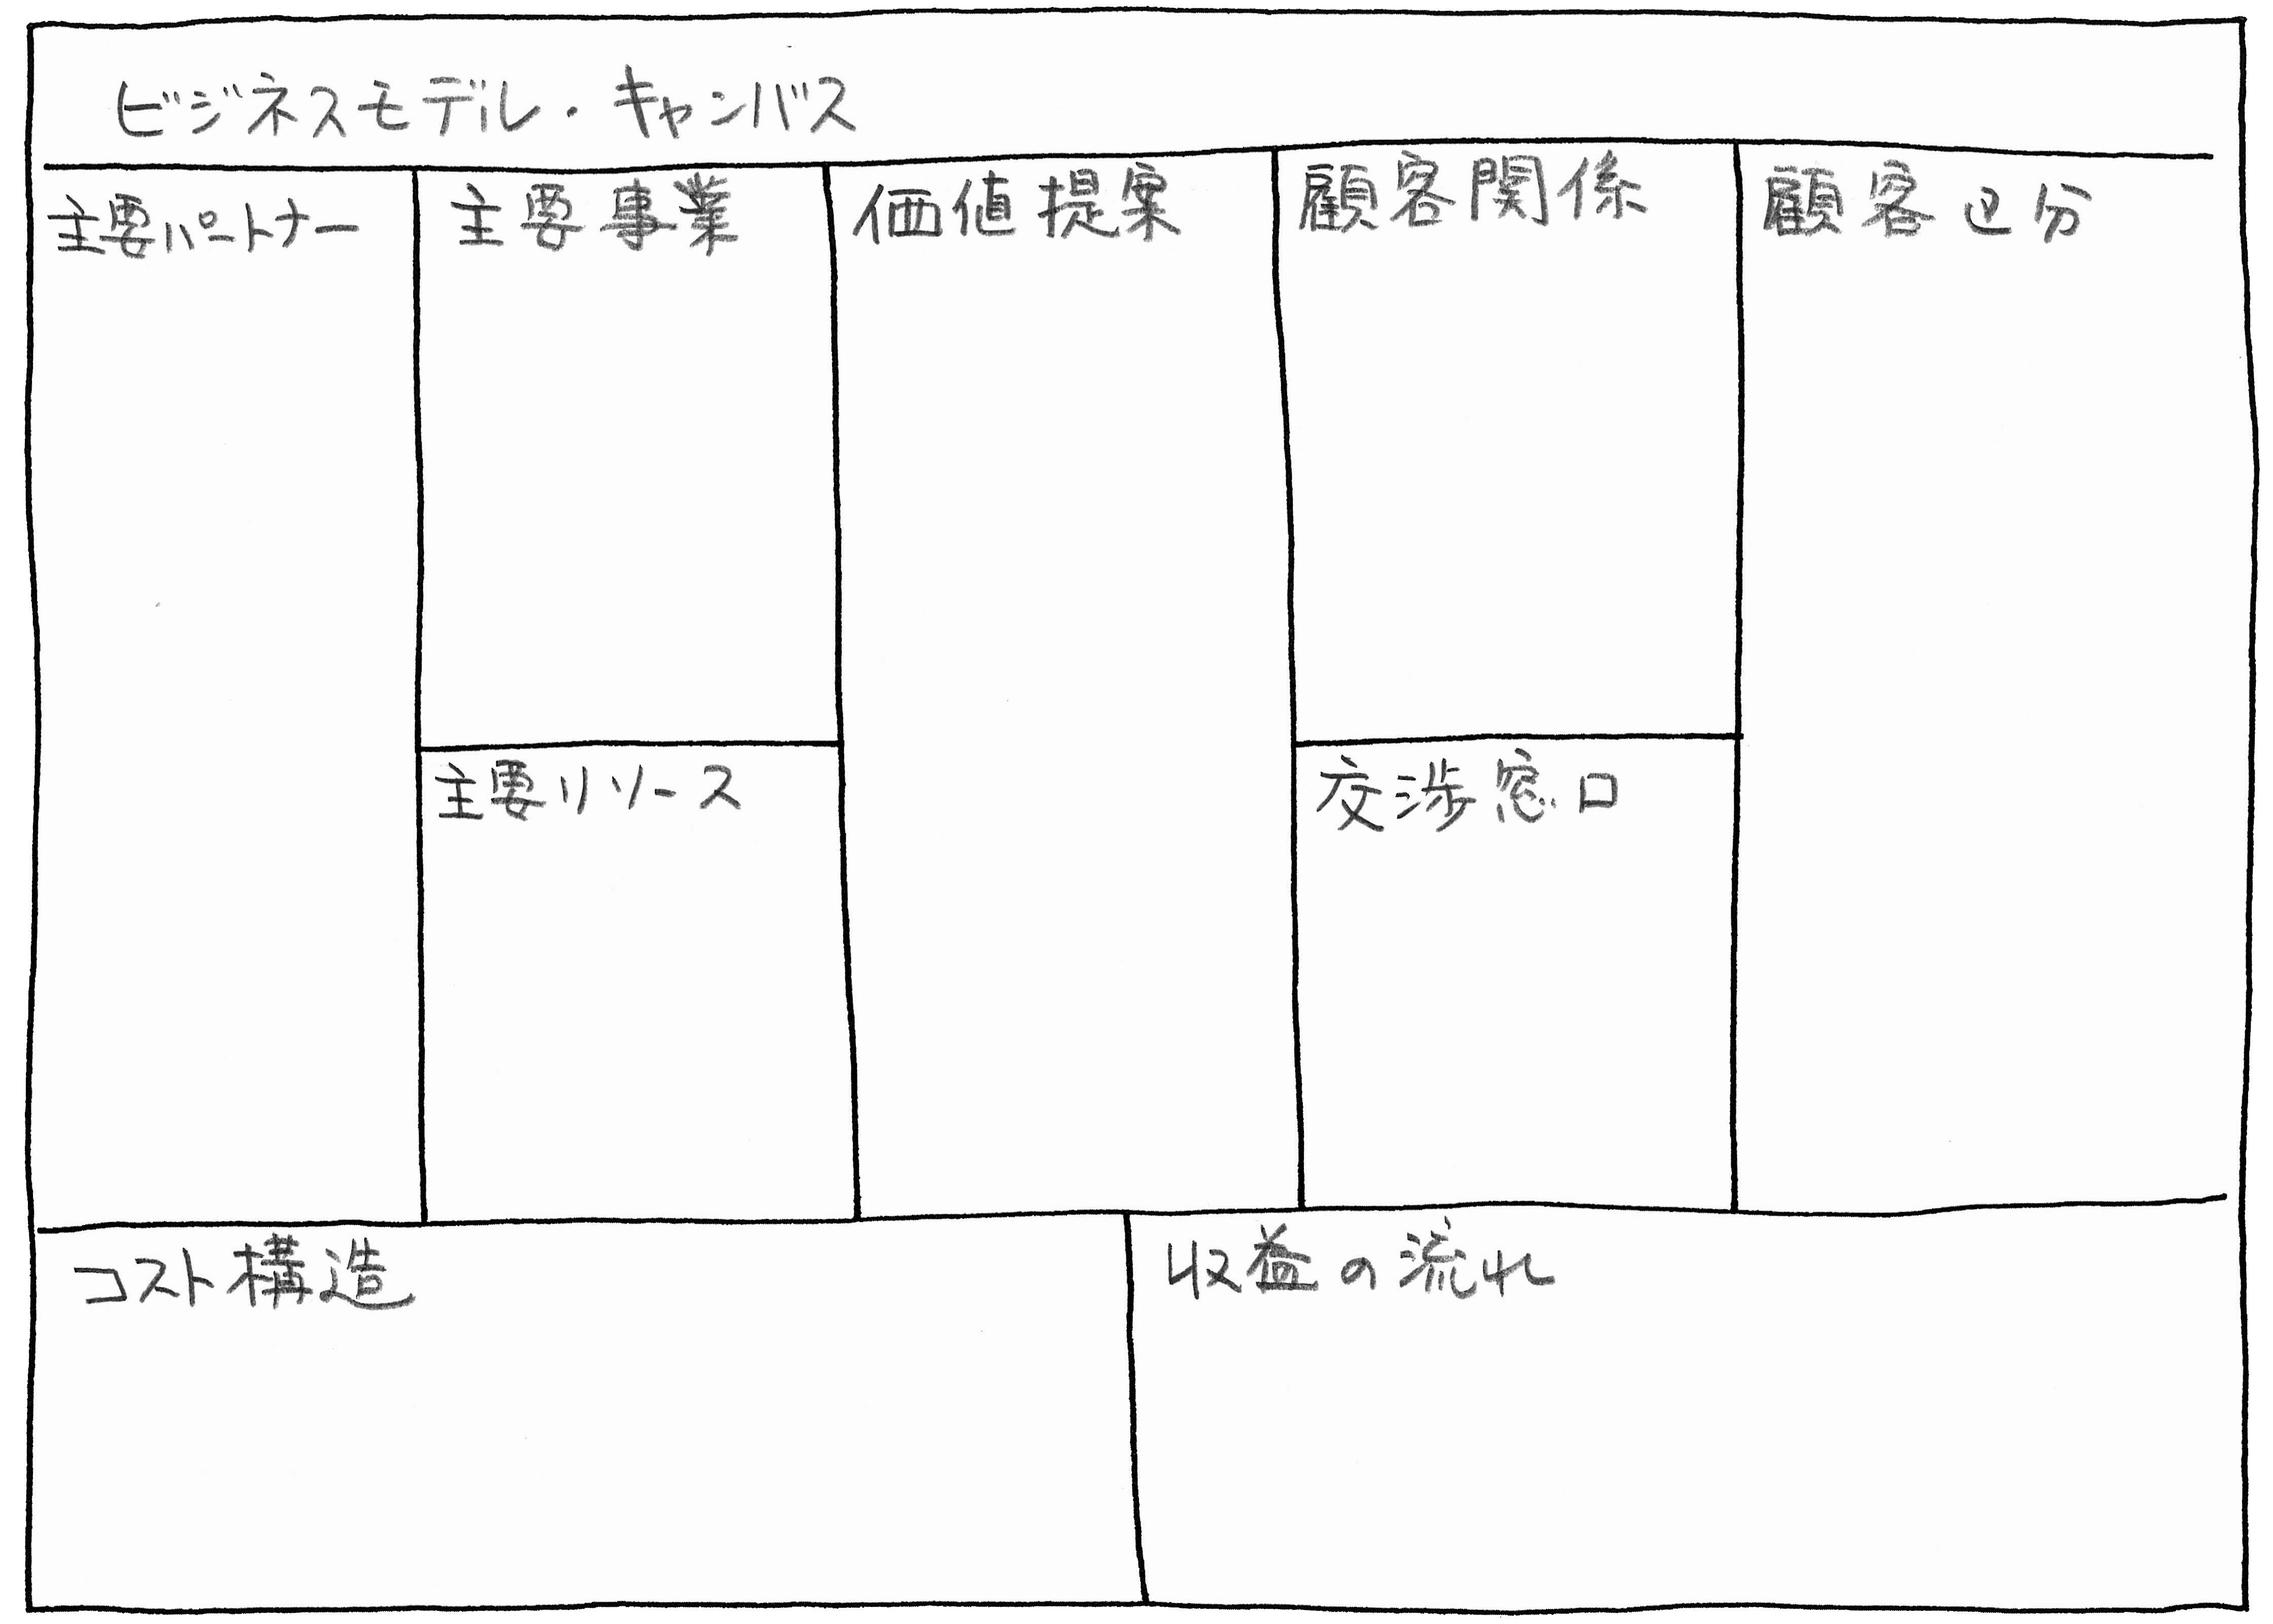 ビジネスモデル・キャンバス
主要パートナー
主要事業
価値提案
顧客関係
顧客区分
主要リソース
交渉窓口
コスト構造
収益の流れ